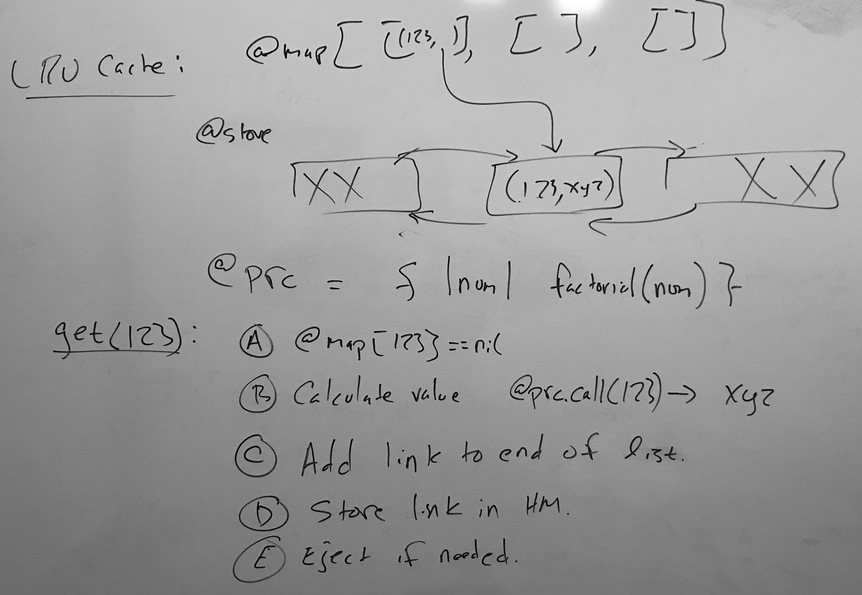 LRU Cache:
@map [ [(123, )], [ ], [ ] ]
@store
XX (123,xyz) XX
@prc = { |num| factorial(num) }
get(123):
A @map[123]==nil
B Calculate value @prc.call(123) → xyz
C Add link to end of list.
D Store link in HM.
E Eject if needed.